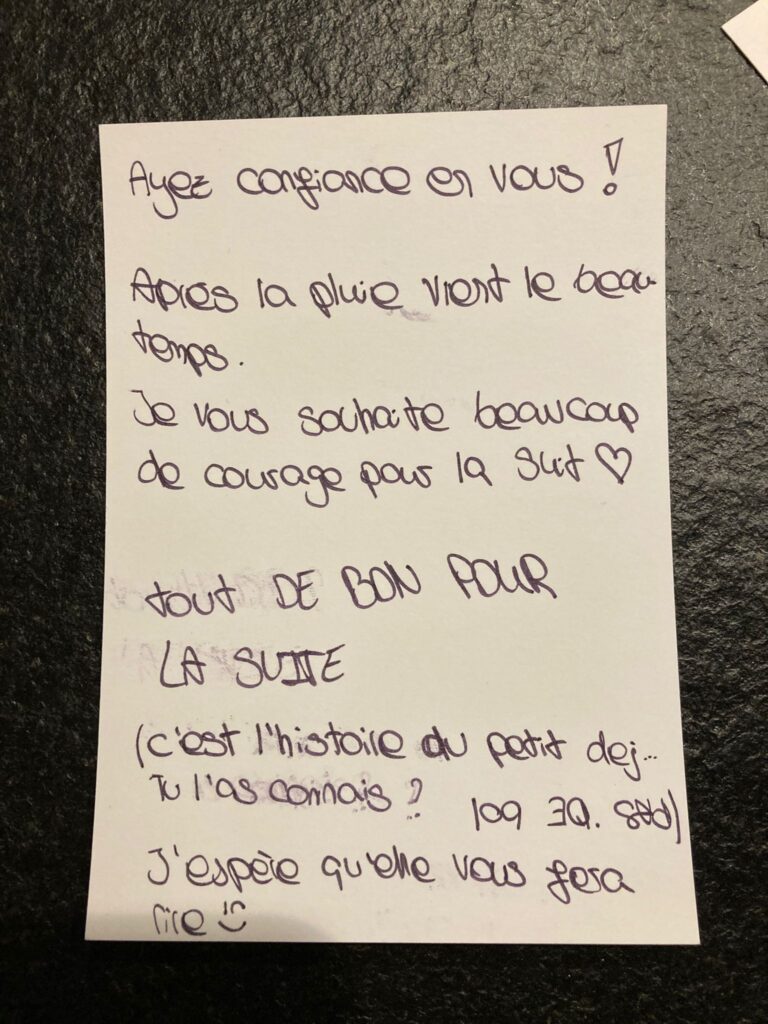 Ayez confiance en vous !
Après la pluie vient le beau
temps.
Je vous souhaite beaucoup
de courage pour la suit ♡
tout DE BON POUR
LA SUITE
(c'est l'histoire du petit dej...
Tu l'as connais ? PAS. DE bol)
J'espère qu'elle vous fera
rire